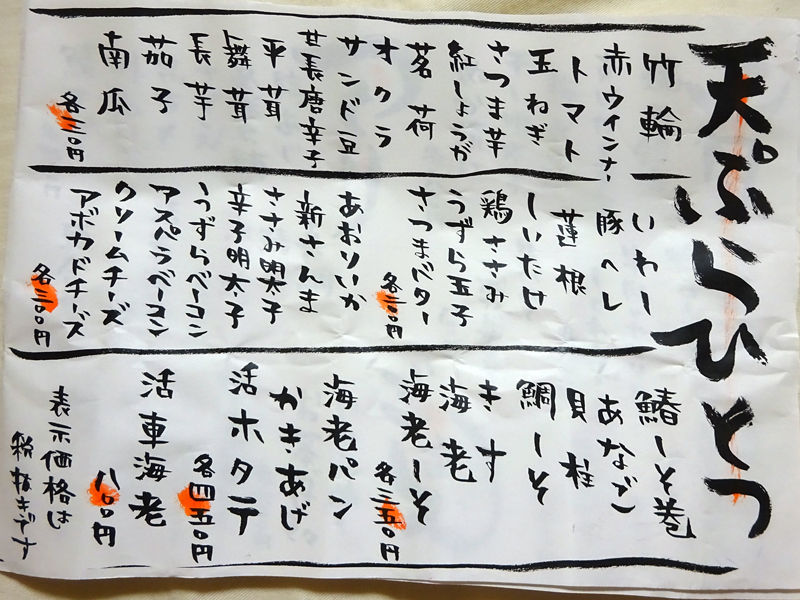 天ぷらひとつ
竹輪
赤ウインナー
トマト
玉ねぎ
さつま芋
紅しょうが
茗荷
オクラ
サンド豆
甘長唐辛子
平茸
舞茸
長芋
茄子
南瓜
いわし
豚ヘレ
蓮根
しいたけ
鶏ささみ
うずら玉子
さつまバター
あおりいか
新さんま
ささみ明太子
辛子明太子
うずらベーコン
アスパラベーコン
クリームチーズ
アボカドチーズ
各三〇〇円
鰆しそ巻
あなご
貝柱
鯛しそ
きす
海老
海老しそ
各三五〇円
海老パン
かきあげ
活ホタテ
各四五〇円
活車海老
八〇〇円
表示価格は
税抜きです